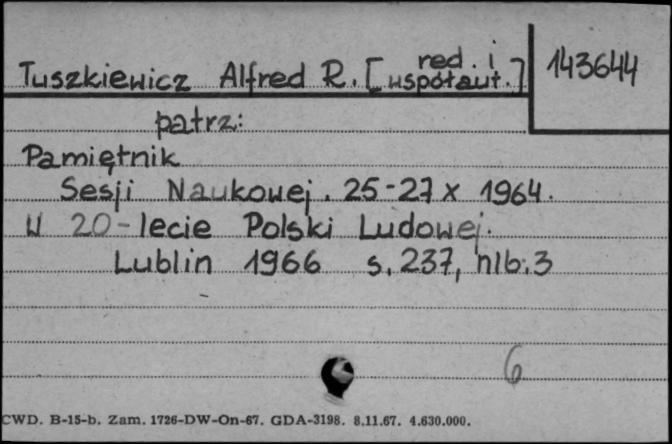 Tuszkiewicz Alfred R. [red. i współaut.] 143644
patrz:
Pamiętnik
Sesji Naukowej. 25-27 X 1964.
W 20-lecie Polski Ludowej.
Lublin 1966 s. 237, nlb. 3
6
CWD. B-15-b. Zam. 1726-DW-On-67. GDA-3198. 8.11.67. 4.630.000.